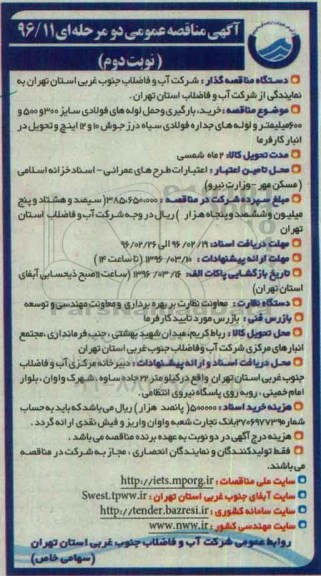 آگهی مناقصه عمومی دو مرحله‌ای ۹۶/۱۱
(نوبت دوم)
دستگاه مناقصه گذار : شرکت آب و فاضلاب جنوب غربی استان تهران به
نمایندگی از شرکت آب و فاضلاب استان تهران .
موضوع مناقصه : خرید، بارگیری و حمل لوله های فولادی سایز ۳۰۰ و ۵۰۰ و
۶۰۰ میلیمتر و لوله های جداره فولادی سیاه درز جوش ۱۰ و ۱۲ اینچ و تحویل در
انبار کارفرما
مدت تحویل کالا: ۲ ماه شمسی
محل تامین اعتبار : اعتبارات طرح های عمرانی - اسناد خزانه اسلامی
( مسکن مهر - وزارت نیرو)
مبلغ سپرده شرکت در مناقصه : ۳۸۵،۶۵۰،۰۰۰ ( سیصد و هشتاد و پنج
میلیون و ششصد و پنجاه هزار ) ریال در وجه شرکت آب و فاضلاب استان
تهران
مهلت دریافت اسناد: ۹۶/۰۲/۱۹ الی ۹۶/۰۲/۲۶
مهلت ارائه پیشنهادات : ۱۳۹۶/۰۳/۱۰ (تا ساعت ۱۴ )
تاریخ بازگشایی پاکات الف: ۱۳۹۶/۰۳/۱۶ (ساعت ۹ صبح ذیحسابی آبفای
استان تهران)
دستگاه نظارت : معاونت نظارت بر بهره برداری و معاونت مهندسی و توسعه
بازرس فنی : بازرس مورد تایید کارفرما
محل تحویل کالا : رباط کریم، میدان شهید بهشتی ، جنب فرمانداری ، مجتمع
انبارهای مرکزی شرکت آب و فاضلاب جنوب غربی استان تهران
محل دریافت اسناد و ارائه پیشنهادات : دبیرخانه مرکزی آب و فاضلاب
جنوب غربی استان تهران واقع در کیلومتر ۲۲ جاده ساوه ، شهرک واوان ، بلوار
امام خمینی ، روبه روی پاسگاه نیروی انتظامی.
هزینه خرید اسناد : ۵۰۰،۰۰۰( پانصد هزار) ریال می باشد که باید به حساب
شماره ۲۷۰۶۹۷۷۳۹۰ بانک تجارت شعبه واوان واریز و فیش نقدی ارائه گردد .
هزینه درج آگهی در دو نوبت به عهده برنده مناقصه می باشد .
فقط تولیدکنندگان و نمایندگان انحصاری ، مجاز به شرکت در مناقصه
می باشند.
سایت ملی مناقصات : http://iets.mporg.ir
سایت آبفای جنوب غربی استان تهران : Swest.tpww.ir
سایت سامانه کشوری : http://tender.bazresi.ir
سایت مهندسی کشور : www.nww.ir
روابط عمومی شرکت آب و فاضلاب جنوب غربی استان تهران
(سهامی خاص)